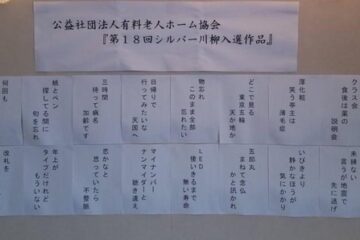 公益社団法人有料老人ホーム協会
『第18回シルバー川柳入選作品』
クラス会
食後は薬の
説明会
厚化粧
笑う亭主は
薄毛症
どこで見る
東京五輪
天か地か
物忘れ
このまま全部
忘れたい
日帰りで
行ってみたいな
天国へ
三時間
待って病名
加齢です
紙とペン
探してる間に
句を忘れ
何回も
未練ない
言うが地震で
先に逃げ
いびきより
静かなほうが
気にかかり
五郎丸
まねて念仏
かと訊かれ
LED
使いきるまで
無い寿命
マイナンバー
ナンマイダーと
聴き違え
恋かなと
思っていたら
不整脈
年上が
タイプだけれど
もういない
改札を